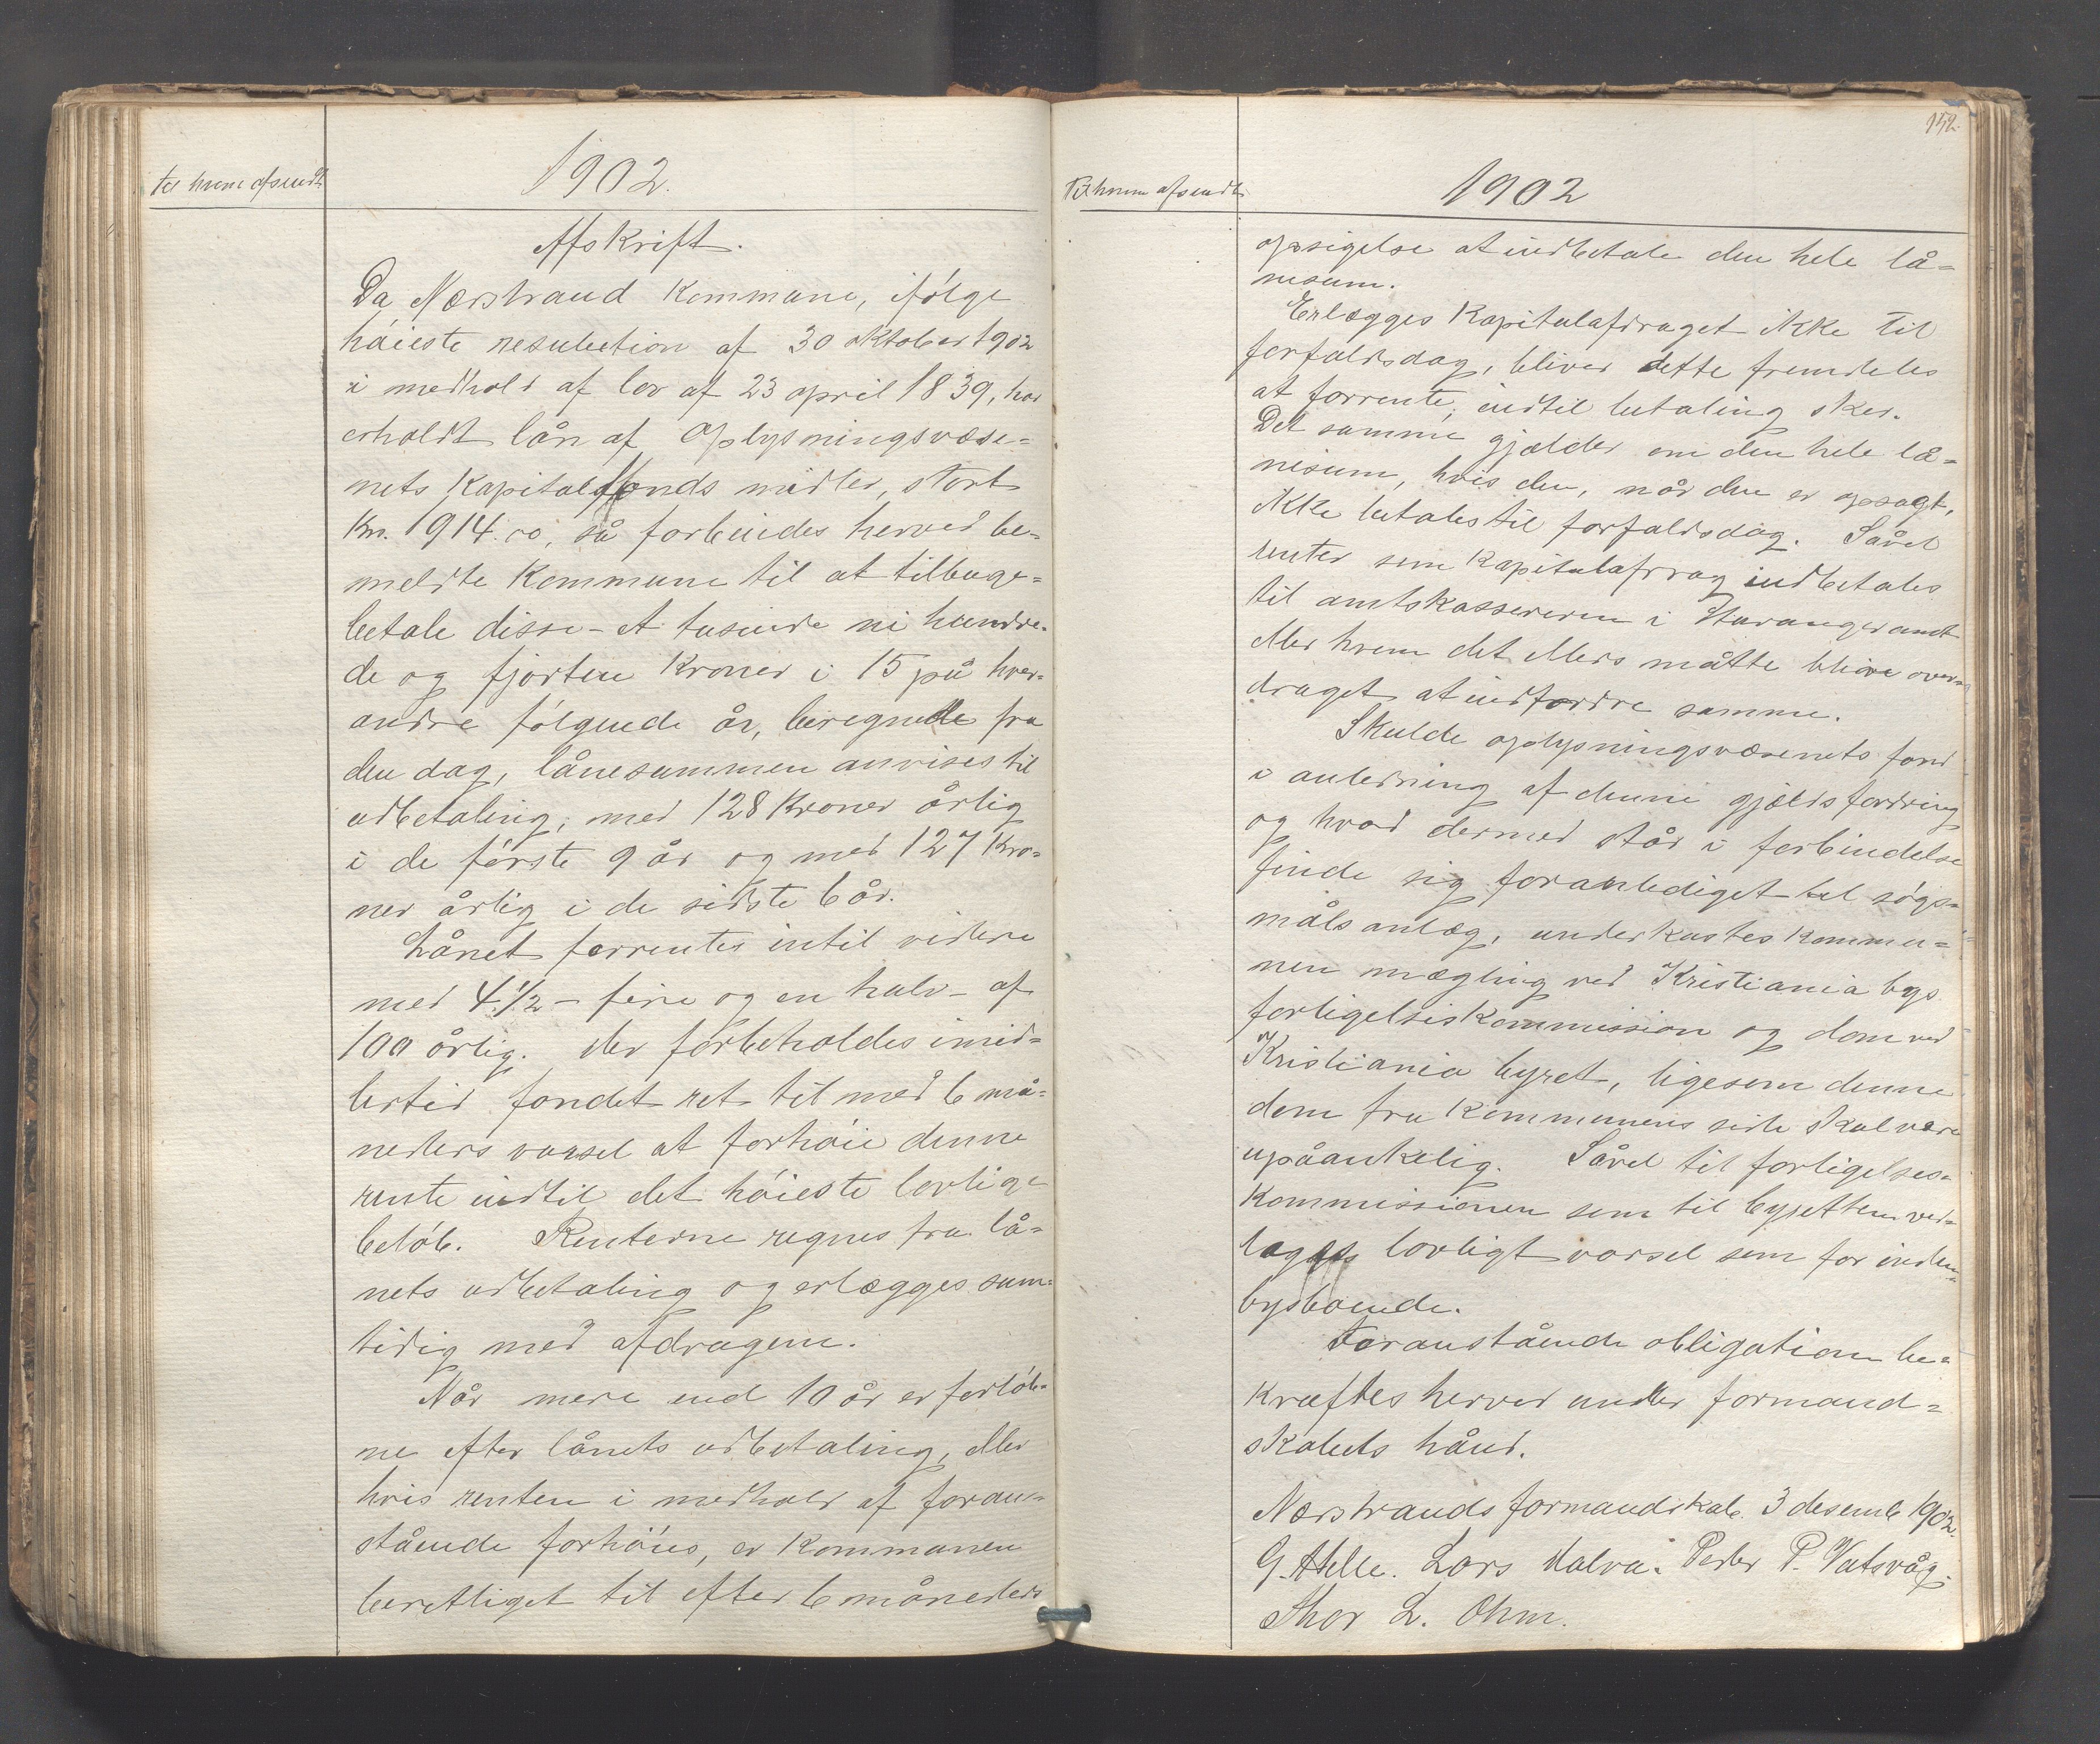 Til hvem afsendt
1902.
Afskrift.
Da Nærstrand kommune, ifølge
høieste resulution af 30 oktober 1902
i medhold af lov af 23 april 1839, har
erholdt lån af Oplysningsvæse=
nets kapitalfonds midler, stort
Kr. 1914.00, så forbindes herved be=
meldte kommune til at tilbage=
betale disse - et tusinde ni hundre=
de og fjorten kroner i 15 på hver=
andre følgende år, beregnede fra
den dag, lånesummen anvises til
udbetaling, med 128 kroner årlig
i de første 9 år og med 127 kro=
ner årlig i de sidste 6 år.
Lånet forrentes intil videre
med 4 1/2 - fire og en halv - af
100 årlig. Der forbeholdes imid=
lertid fondet ret til med 6 må=
neders varsel at forhøie denne
rente indtil det høieste lovlige
beløb. Renterne regnes fra lå=
nets udbetaling og erlægges sam=
tidig med afdragene.
Når mere end 10 år er forløb=
ne efter lånets udbetaling, eller
hvis renten i medhold af foran=
stående forhøies, er kommunen
berettiget til efter 6 måneders
152.
Til hvem afsendt
1902
opsigelse at indbetale den hele lå=
nesum.
Erlægges kapitalafdraget ikke til
forfaldsdag, bliver dette fremdeles
at forrente, indtil betaling sker.
Det samme gjælder om den hele lå=
nesum, hvis den, når den er opsagt,
ikke betales til forfaldsdag. Såvel
renter som kapitalafdrag indbetales
til amtskassereren i Stavanger amt
eller hvem det ellers måtte blive over=
draget at indfordre samme.
Skulde oplysningsvæsenets fond
i anledning af denne gjældsfordring
og hvad dermed står i forbindelse
finde sig foranlediget til søgs=
måls anlæg, underkastes kommu=
nen mægling ved Kristiania bys
forligelseskommission og dom ved
Kristiania byret, ligesom denne
dom fra kommunens side skal være
upåankelig. Såvel til forligelses=
kommissionen som til byretten ved=
tages lovligt varsel som for inden=
bysboende.
Foranstående obligation be=
kræftes herved under formand=
skabets hånd.
Nærstrands formandskab. 3 desemb 1902.
G. Helle. Lars Dalva. Peder P. Vatsvåg.
Thor L. Ohm.